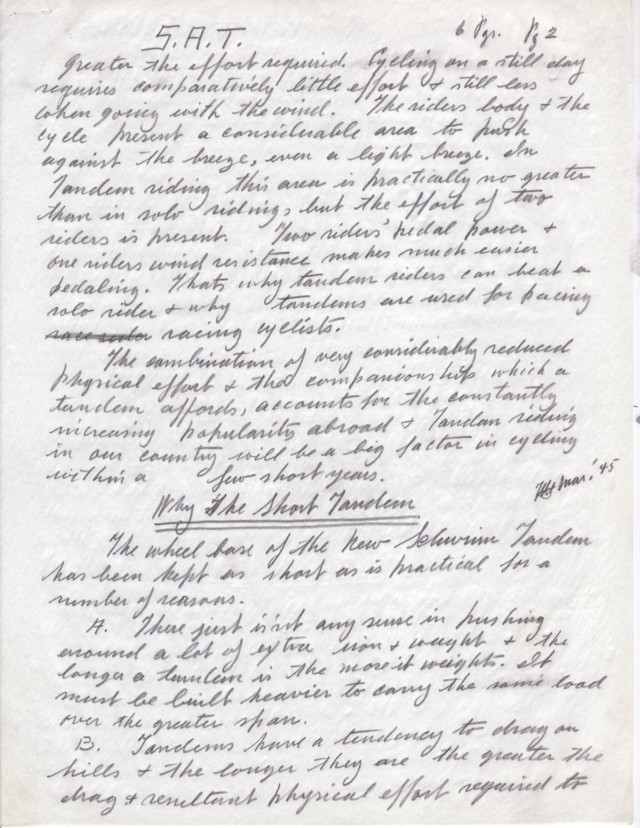 S.A.T.
6 Pgs. Pg 2
Greater the effort required. Cycling on a still day
requires comparatively little effort & still less
when going with the wind. The riders body & the
cycle present a considerable area to push
against the breeze, even a light breeze. In
Tandem riding this area is practically no greater
than in solo riding, but the effort of two
riders is present. Two riders' pedal power &
one riders wind resistance makes much easier
pedaling. Thats why tandem riders can beat a
solo rider & why tandems are used for pacing
racing cyclists.
The combination of very considerably reduced
physical effort & the companionship which a
tandem affords, accounts for the constantly
increasing popularity abroad & Tandem riding
in our country will be a big factor in cycling
within a few short years.
Mar. '45
Why The Short Tandem
The wheel base of the New Schwinn Tandem
has been kept as short as is practical for a
number of reasons.
A. There just isn't any sense in pushing
around a lot of extra iron & weight & the
longer a tandem is the more it weighs. It
must be built heavier to carry the same load
over the greater span.
B. Tandems have a tendency to drag on
hills & the longer they are the greater the
drag & resultant physical effort required to